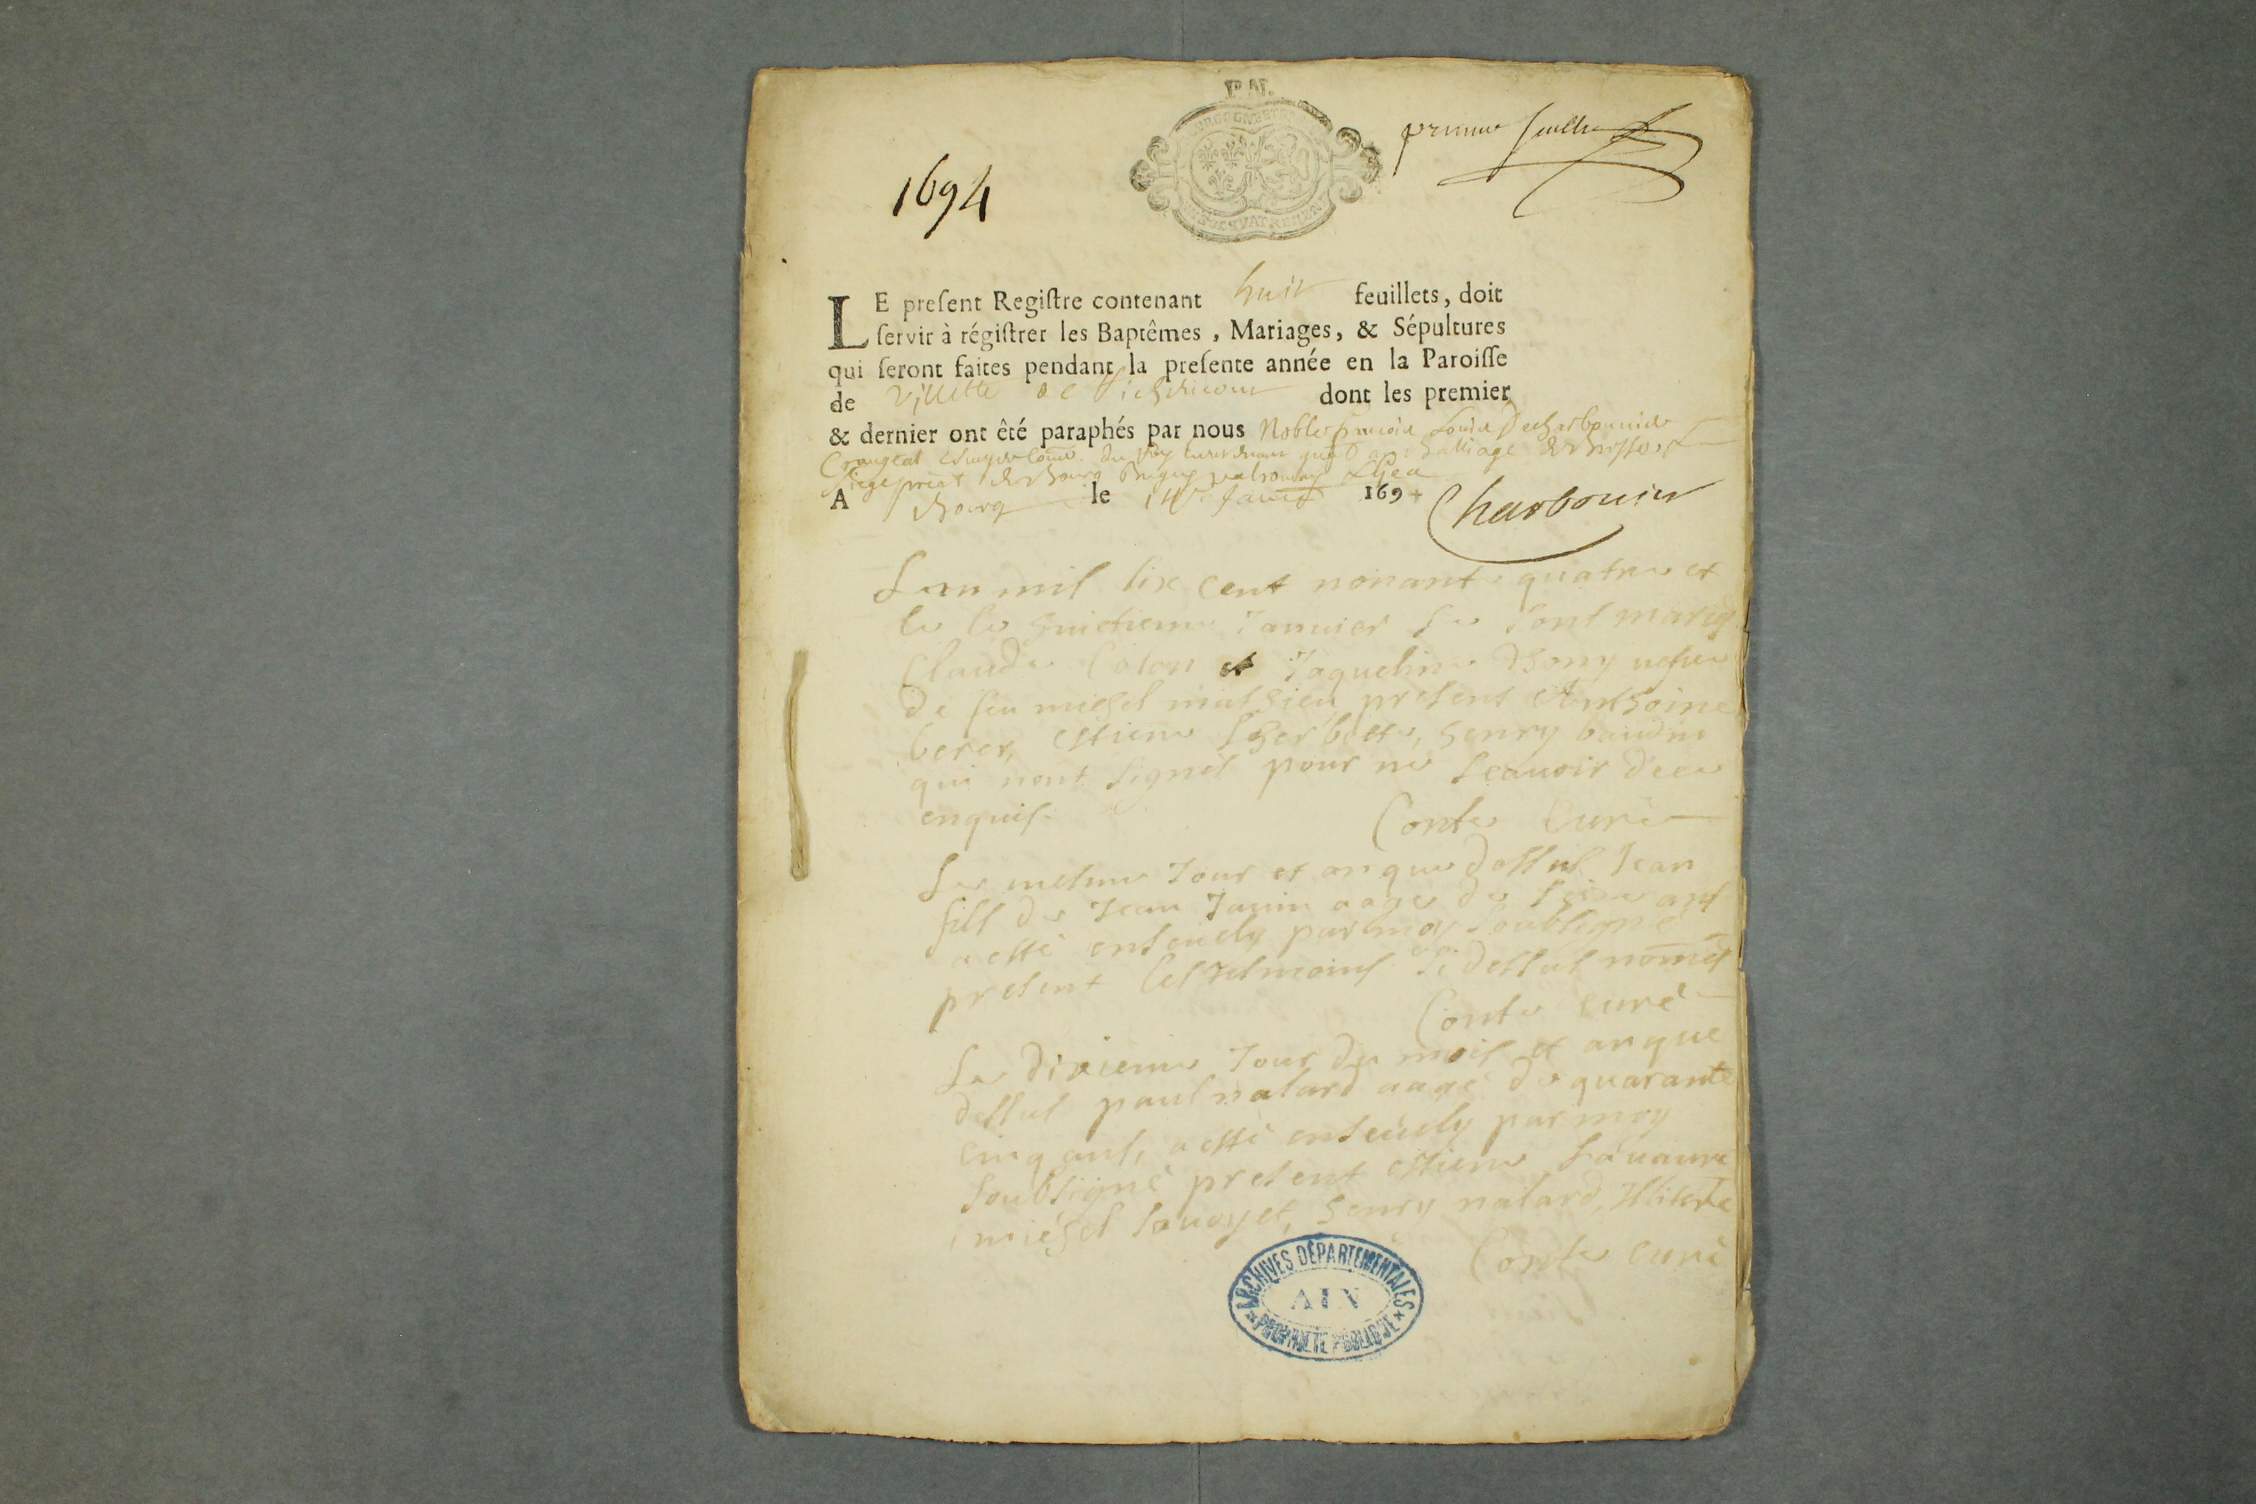 P. N.
premier feuillet
1694
LE preſent Regiſtre contenant huit feuillets, doit
ſervir à régiſtrer les Baptêmes, Mariages, & Sépultures
qui ſeront faites pendant la preſente année en la Paroiſſe
de Villette de Richemont dont les premier
& dernier ont êté paraphés par nous Noble françois Louis Decharbonnier
Crangeat
A Bourg le Janvier 1694
Charbonnier
Lan mil six cent nonante quatre et
le huictieme Januier se sont mariez
Claude Coton et Jaqueline Bony uefue
de feu michel mathieu present Anthoine
berer, estiene Therbette, henry baudin
qui nont signés pour ne scauoir de ce
enquis.
Conte Curé
Le mesme Jour et an que dessus Jean
fils de Jean Janin aage de seize ans
a esté enseuely par moy soubsigné
present les tesmoins si dessus només
Conte curé
Le dixieme Jour du mois et an que
dessus paul nalard aagé de quarante
cinq ans, a esté enseuely par moy
soubsigné present estiene
michel souoyet, henry nalard, Illiteré
Conte curé
ARCHIVES DÉPARTEMENTALES
AIN
PROPRIÉTÉ PUBLIQUE